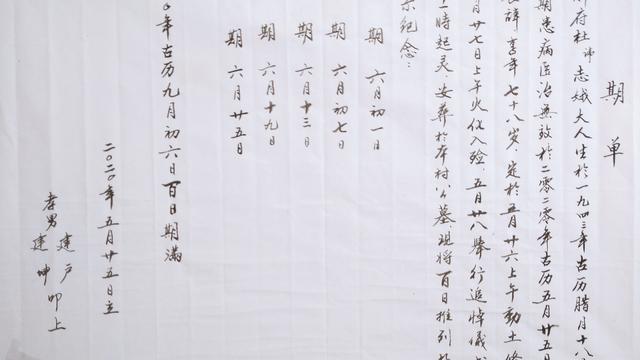 期单
府杜 志娥大人生於一九四三年古历腊月十八
期患病医治无效於二零二零年古历五月廿五
辞享年七十八岁,定於五月廿六上午动土修
月廿七日上午火化入殓,五月廿八举行追悼仪
时起灵,安葬於本村公墓,现将百日推列
纪念:
期 六月初一日
期 六月初七日
期 六月十三日
期 六月十九日
期 六月廿五日
年古历九月初六日百日期满
二〇二〇年五月廿五日立
孝男 建户
建坤 叩上